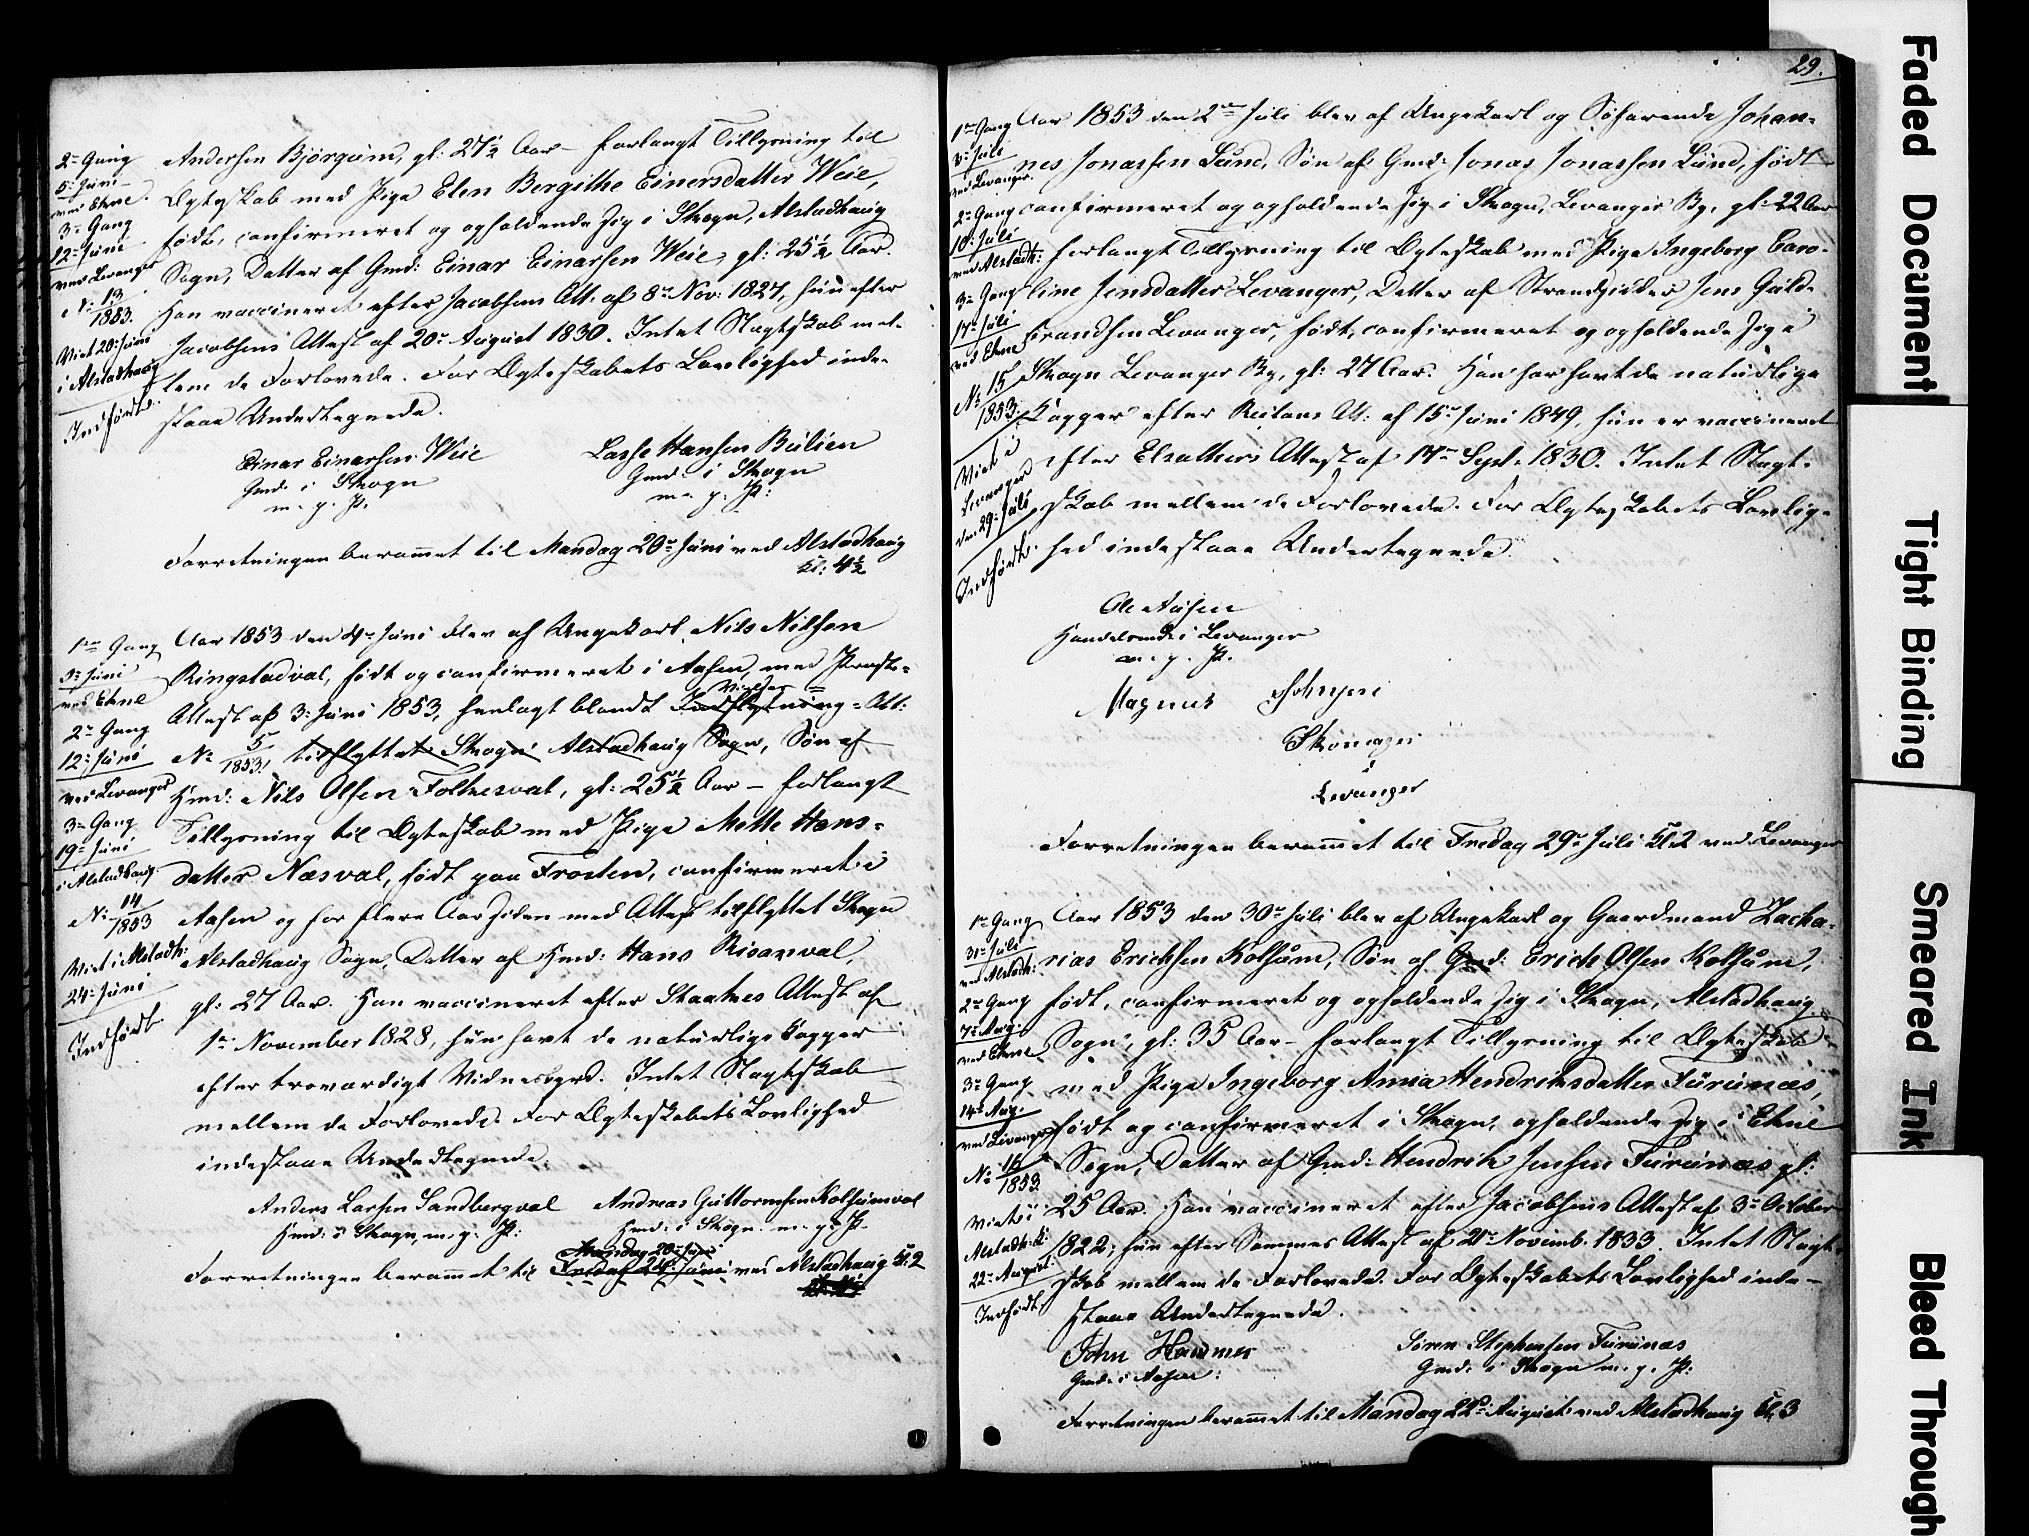 2= Gang
5= Juni
ved Ekne.
3= Gang
12= Juni
ved Levanger
N: 13
1853.
Viet 20= Juni
i Alstadhaug
Indført.
Andersen Bjørgum, gl: 27½ Aar - forlangt Tillysning til
Ægteskab med Pige Elen Bergithe Einersdatter Weie,
født, confirmeret og opholdende sig i Skogn, Alstadhaug
Sogn, Datter af Gmd: Einar Einarsen Weie, gl: 25½ Aar.
Han vaccineret efter Jacobsens Att. af 8= Nov: 1827, hun efter
Jacobsens Attest af 20= August 1830. Intet Slagtskab mel-
lem de Forlovede. For Ægteskabets Lovlighed inde-
staae Undertegnede.
Einar Einarsen Weie
Gmd: i Skogn
m. p. P.
Lasse Hansen Bulien
Gmd: i Skogn
m. p. P:
Forretningen berammet til Mandag 20= Juni ved Alstadhaug
Kl: 4½
1= Gang
5= Juni
ved Ekne
2= Gang
12= Juni
ved Levanger
3= Gang
19= Juni
i Alstadhaug
N: 14
1853
Viet i Alstadh:
24= Juni
Indført.
Aar 1853 den 4= Juni blev af Ungekarl Nils Nilsen
Ringstadval, født og confirmeret i Aasen, med Præste-
Attest af 3= Juni 1853, henlagt blandt Indflytnings Vielses = Att:
N: 5/1853! tilflyttet Skogn Alstadhaug Sogn, Søn af
Hmd: Nils Olsen Folkesval, gl: 25½ Aar - forlangt
Tillysning til Ægteskab med Pige Mette Hans-
datter Næsval, født paa Frosten, confirmeret i
Aasen og for flere Aar siden med Attest tilflyttet Skogn
Alstadhaug Sogn, Datter af Hmd: Hans Risanval,
gl: 27 Aar. Han vaccineret efter Staatnes Attest af
1= November 1828, hun havt de naturlige Kopper
efter troværdigt Vidnesbyrd. Intet Slagtskab
mellem de Forlovede. For Ægteskabets Lovlighed
indestaae Undertegnede.
Anders Larsen Sandbergval
Hmd: i Skogn, m. p. P:
Andreas Guttormsen Kolsumval
Hmd: i Skogn m. p. P.
Mandag 20= Juni
Forretningen berammet til Fredag 24= Juni ved Alstadhaug Kl. 2
29.
1= Gang
3= Juli
ved Levanger.
2= Gang
10= Juli
ved Alstadh:
3= Gang
17= Juli
ved Ekne
N: 15
1853.
Viet i
Levanger
den 29= Juli
Indført.
Aar 1853 den 2= Juli blev af Ungekarl og Søfarende Johan-
nes Jonassen Lund, Søn af Gmd: Jonas Jonassen Lund, født
confirmeret og opholdende sig i Skogn, Levanger By, gl: 22 Aar
forlangt Tillysning til Ægteskab med Pige Ingeborg Caro-
line Jensdatter Levanger, Datter af Strandsidder Jens Guld-
brandsen Levanger, født, confirmeret og opholdende sig i
Skogn Levanger By, gl: 27 Aar. Han har havt de naturlige
Kopper efter Reitans Att: af 15= Juni 1849, hun er vaccineret
efter Elsathers Attest af 17= Sept: 1830. Intet Slagt-
skab mellem de Forlovede. For Ægteskabets Lovlig-
hed indestaae Undertegnede.
Ole Aasen
Handelsmd: i Levanger
m. p. P.
Magnus Johnsen
Skomager
i
Levanger
Forretningen berammet til Fredag 29= Juli Kl 2 ved Levanger
1= Gang
31= Juli
ved Alstadh:
2= Gang
7= Aug:
ved Ekne
3= Gang
14= Aug:
ved Levanger
N: 16
1853.
Viet i
Alstadh:
22= August.
Indført.
Aar 1853 den 30= Juli blev af Ungekarl og Gaardmand Zacha-
rias Erichsen Kolsum, Søn af Gmd: Erich Olsen Kolsum,
født, confirmeret og opholdende sig i Skogn, Alstadhaug
Sogn, gl: 35 Aar - forlangt Tillysning til Ægteskab
med Pige Ingeborg Anna Hendriksdatter Furunæs,
født og confirmeret i Skogn, opholdende sig i Ekne
Sogn, Datter af Gmd: Hendrik Jensen Furunæs gl:
25 Aar. Han vaccineret efter Jacobsens Attest af 3= October
1822, hun efter Sammes Attest af 21= Novemb. 1833. Intet Slagt-
skab mellem de Forlovede. For Ægteskabets Lovlighed inde-
staae Undertegnede.
John Hammer
Gmd: i Aasen:
Søren Stephensen Furunæs
Gmd: i Skogn m. p. P:
Forretningen berammet til Mandag 22= August ved Alstadhaug Kl. 3
Faded Document
Tight Binding
Smeared Ink
Bleed Through